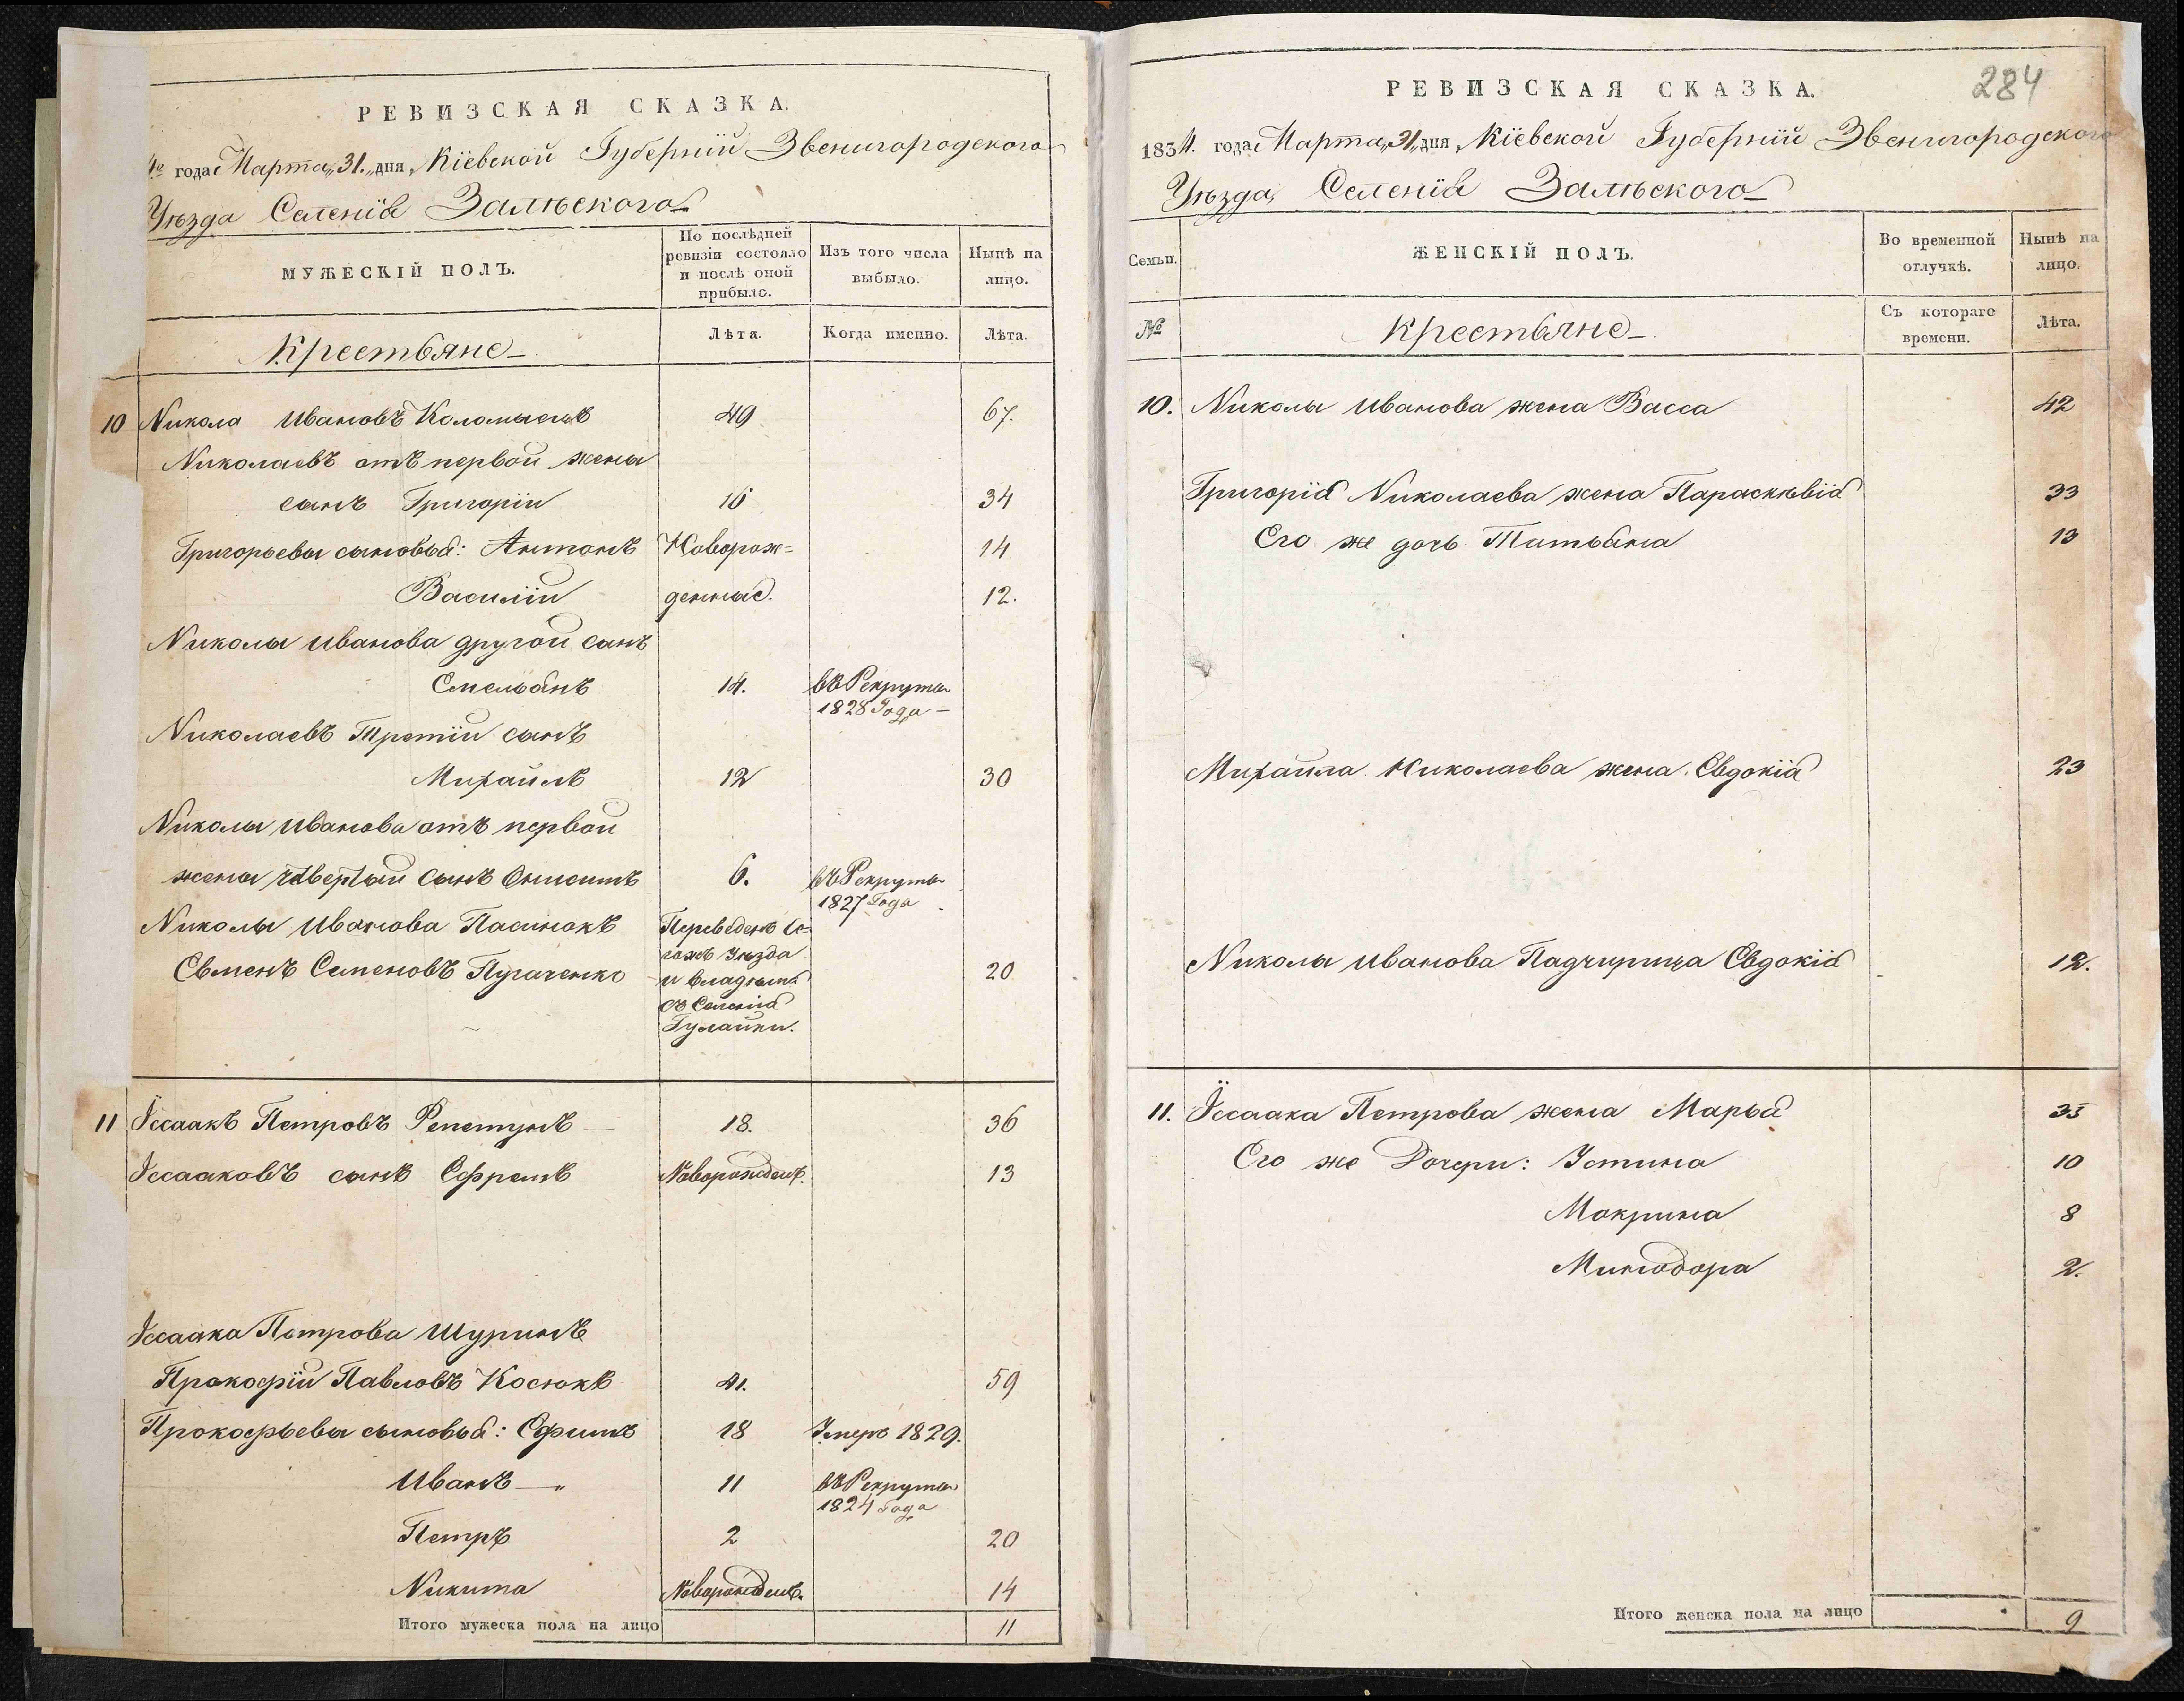 РЕВИЗСКАЯ СКАЗКА.
года Марта „31.„ дня, Кіевской Губерніи Звенигородского
Уѣзда Селенія Залѣского
МУЖЕСКІЙ ПОЛЪ.
По послѣдней ревизіи состояло и послѣ оной прибыло.
Изъ того числа выбыло.
Нынѣ на лицо.
Лѣта.
Когда именно.
Лѣта.
Крестьяне
10 Никола Ивановъ 49 67.
Николаевъ отъ первой жены
сынъ Григорій 16 34
Григорьевы сыновья: Антонъ Новорож= 14
Василій денныя. 12.
Николы Иванова другой сынъ
Емельянъ 14. въ Рекруты 1828 Года
Николаевъ Третій сынъ
Михайлъ 12 30
Николы Иванова отъ первой
жены четвертый сынъ Онисимъ 6. въ Рекруты 1827 Года
Николы Иванова Пасинокъ Переведенъ
Евменъ Семеновъ Пугаченко Уѣзда 20
съ Селенія
Гулайки.
11 Іссаакъ Петровъ Репетунъ 18. 36
Іссааковъ сынъ Ефремъ Новорожденъ. 13
Іссаака Петрова Шуринъ
Прокофій Павловъ Косюкъ 41. 59
Прокофьевы сыновья: Ефимъ 18 Умеръ 1829.
Иванъ „ 11 въ Рекруты 1824 Года
Петръ 2 20
Никита Новорожденъ. 14
Итого мужеска пола на лицо 11
284
РЕВИЗСКАЯ СКАЗКА.
1834. года Марта „31„ дня, Кіевской Губерніи Звенигородского
Уѣзда, Селенія Залѣского
Семьи.
ЖЕНСКІЙ ПОЛЪ.
Во временной отлучкѣ.
Нынѣ на лицо.
№
Крестьяне
Съ котораго времени.
Лѣта.
10. Николы Иванова жена Васса 42
Григорія Николаева жена Параскѣвія 33
Его же дочь Татьяна 13
Михайла Николаева жена Евдокія 23
Николы Иванова Падчирица Евдокія 12.
11. Іссаака Петрова жена Марья 35
Его же Дочери: Устина 10
Мокрина 8
Минодора 2.
Итого женска пола на лицо 9